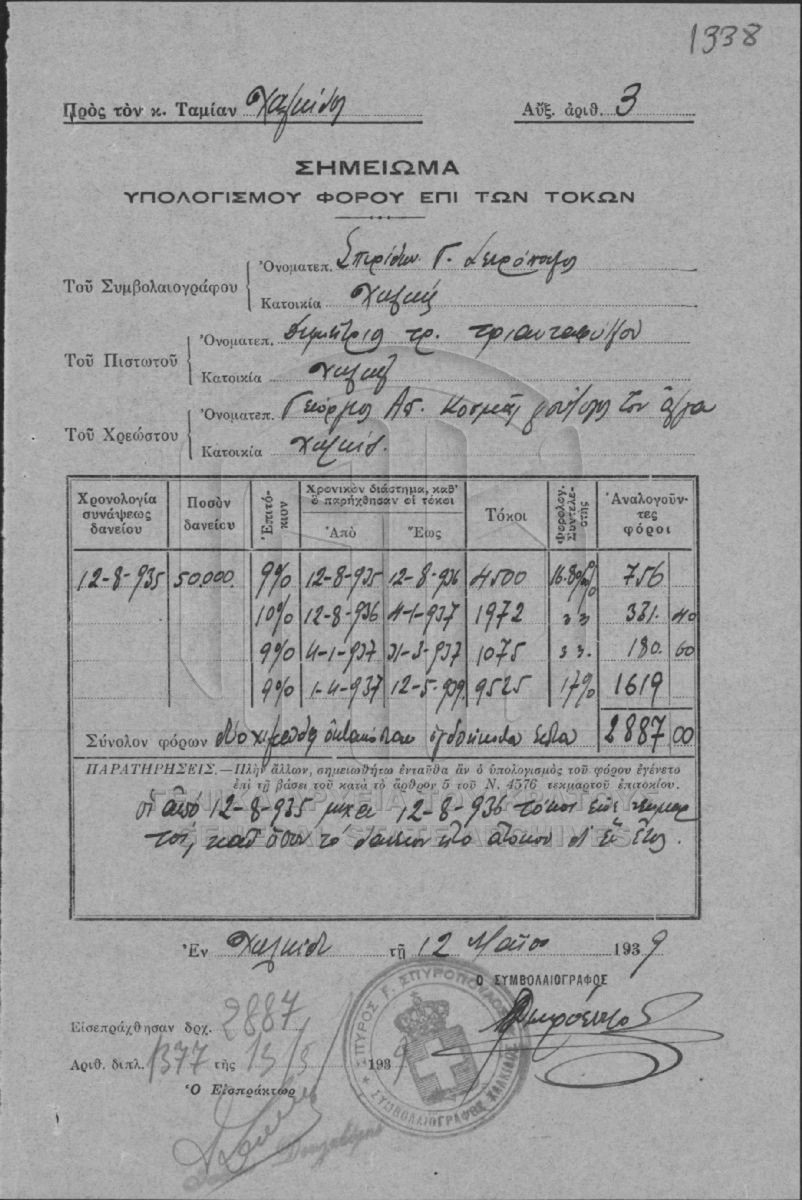 1338
Πρὸς τὸν κ. Ταμίαν Χαλκίδος Αὔξ. ἀριθ. 3
ΣΗΜΕΙΩΜΑ
ΥΠΟΛΟΓΙΣΜΟΥ ΦΟΡΟΥ ΕΠΙ ΤΩΝ ΤΟΚΩΝ
Τοῦ Συμβολαιογράφου
Ὀνοματεπ. Σπυρίδων Γ. Σπυρόπουλος
Κατοικία Χαλκίς
Τοῦ Πιστωτοῦ
Ὀνοματεπ. Δημήτριος Τρ. Τριανταφύλλου
Κατοικία Χαλκίς
Τοῦ Χρεώστου
Ὀνοματεπ. Γεώργιος Κοσμᾶς τον
Κατοικία Χαλκίδ.
Χρονολογία συνάψεως δανείου Ποσὸν δανείου Ἐπιτόκιον Χρονικὸν διάστημα, καθ' ὃ παρήχθησαν οἱ τόκοι Ἀπὸ Ἕως Τόκοι Φορολογ. Συντελεστὴς Ἀναλογοῦντες φόροι
12-8-935 50.000 9% 12-8-935 12-8-936 4500 16.80% 756
10% 12-8-936 4-1-937 1972 〃 〃 331. 40
9% 4-1-937 31-3-937 1075 〃 〃 180. 60
9% 1-4-937 12-5-939. 9525 17% 1619
Σύνολον φόρων Δύο χιλιάδες ὀκτακόσιαι ὀγδοήκοντα ἑπτά 2887 00
ΠΑΡΑΤΗΡΗΣΕΙΣ.—Πλὴν ἄλλων, σημειωθήτω ἐνταῦθα ἂν ὁ ὑπολογισμὸς τοῦ φόρου ἐγένετο
ἐπὶ τῇ βάσει τοῦ κατὰ τὸ ἄρθρον 5 τοῦ Ν. 4576 τεκμαρτοῦ ἐπιτοκίου.
οἱ ἀπό 12-8-935 μέχρι 12-8-936 τόκοι εἶναι τεκμαρ
τοί, καθ' ὅσον τό δάνειον ἦτο ἄτοκον δι' ἕν ἔτος.
Ἐν Χαλκίδι τῇ 12 Μαΐου 1939
Ο ΣΥΜΒΟΛΑΙΟΓΡΑΦΟΣ
ΣΠΥΡΟΣ Γ. ΣΠΥΡΟΠΟΥΛΟΣ
ΣΥΜΒΟΛΑΙΟΓΡΑΦΟΣ ΧΑΛΚΙΔΟΣ
Εἰσεπράχθησαν δρχ. 2887
Ἀριθ. διπλ. 1377 τῆς 15/5/1939
Ὁ Εἰσπράκτωρ